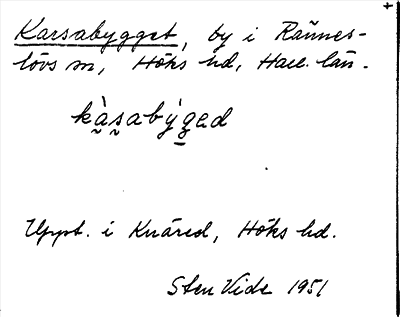 Karsabygget, by i Rännes-
lövs sn, Höks hd, Hall. län.
kàsabýged
Uppt. i Knäred, Höks hd.
Sten Vide 1951